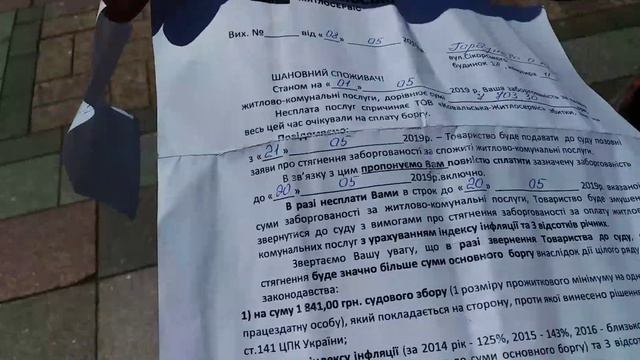 ЖИТЛОСЕРВІС
Вих. №_____ від «03» 05 201
вул.Сікорського
будинок
ШАНОВНИЙ СПОЖИВАЧ!
Станом на «01» 05 2019 р. Ваша заборгованість за
житлово-комунальні послуги, дорівнює сумі
Несплата послуг спричиняє ТОВ «Ковальська-Житлосервіс» збитки,
весь цей час очікували на сплату боргу.
Повідомляємо:
з «21» 05 2019р. – Товариство буде подавати до суду позовні
заяви про стягнення заборгованості за спожиті житлово-комунальні послуги.
В зв'язку з цим пропонуємо Вам повністю сплатити зазначену заборгованість
до «20» 05 2019р.включно.
В разі несплати Вами в строк до «20» 05 2019р. вказано
суми заборгованості за житлово-комунальні послуги, Товариство буде змушен
звернутися до суду з вимогами про стягнення заборгованості за оплату житлов
комунальних послуг з урахуванням індексу інфляції та 3 відсотків річних.
Звертаємо Вашу увагу, що в разі звернення Товариства до суду,
стягнення буде значно більше суми основного боргу внаслідок дії цілого ряду
законодавства:
1) на суму 1 841,00 грн. судового збору (1 розміру прожиткового мінімуму на одн
працездатну особу), який покладається на сторону, проти якої винесено рішення
ст.141 ЦПК України;
індексу інфляції (за 2014 рік - 125%, 2015 - 143%, 2016 - близько
суми основного боргу) та 3 відсо